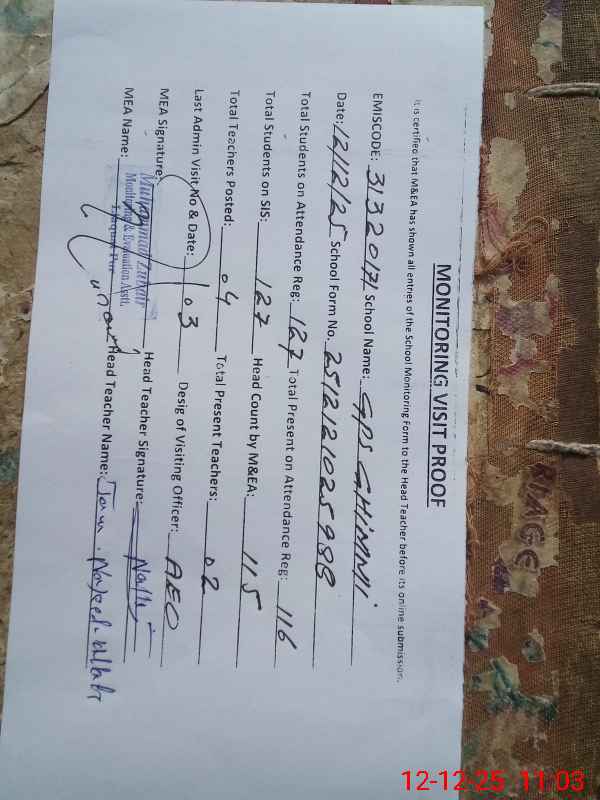 MONITORING VISIT PROOF
It is certified that M&EA has shown all entries of the School Monitoring Form to the Head Teacher before its online submission.
EMISCODE: 31320171 School Name: GPS GHIMNII
Date: 12/12/25 School Form No. 2512121025988
Total Students on Attendance Reg: 127 Total Present on Attendance Reg: 116
Total Students on SIS: 127 Head Count by M&EA: 115
Total Teachers Posted: 04 Total Present Teachers: 02
Last Admin Visit No & Date: 03 Desig of Visiting Officer: AEO
MEA Signature: Head Teacher Signature:
Muhammad Zubair
Monitoring & Evaluation Asstt.
MEA Name: Head Teacher Name: Jam. Najeeb ullah
12-12-25 11:03